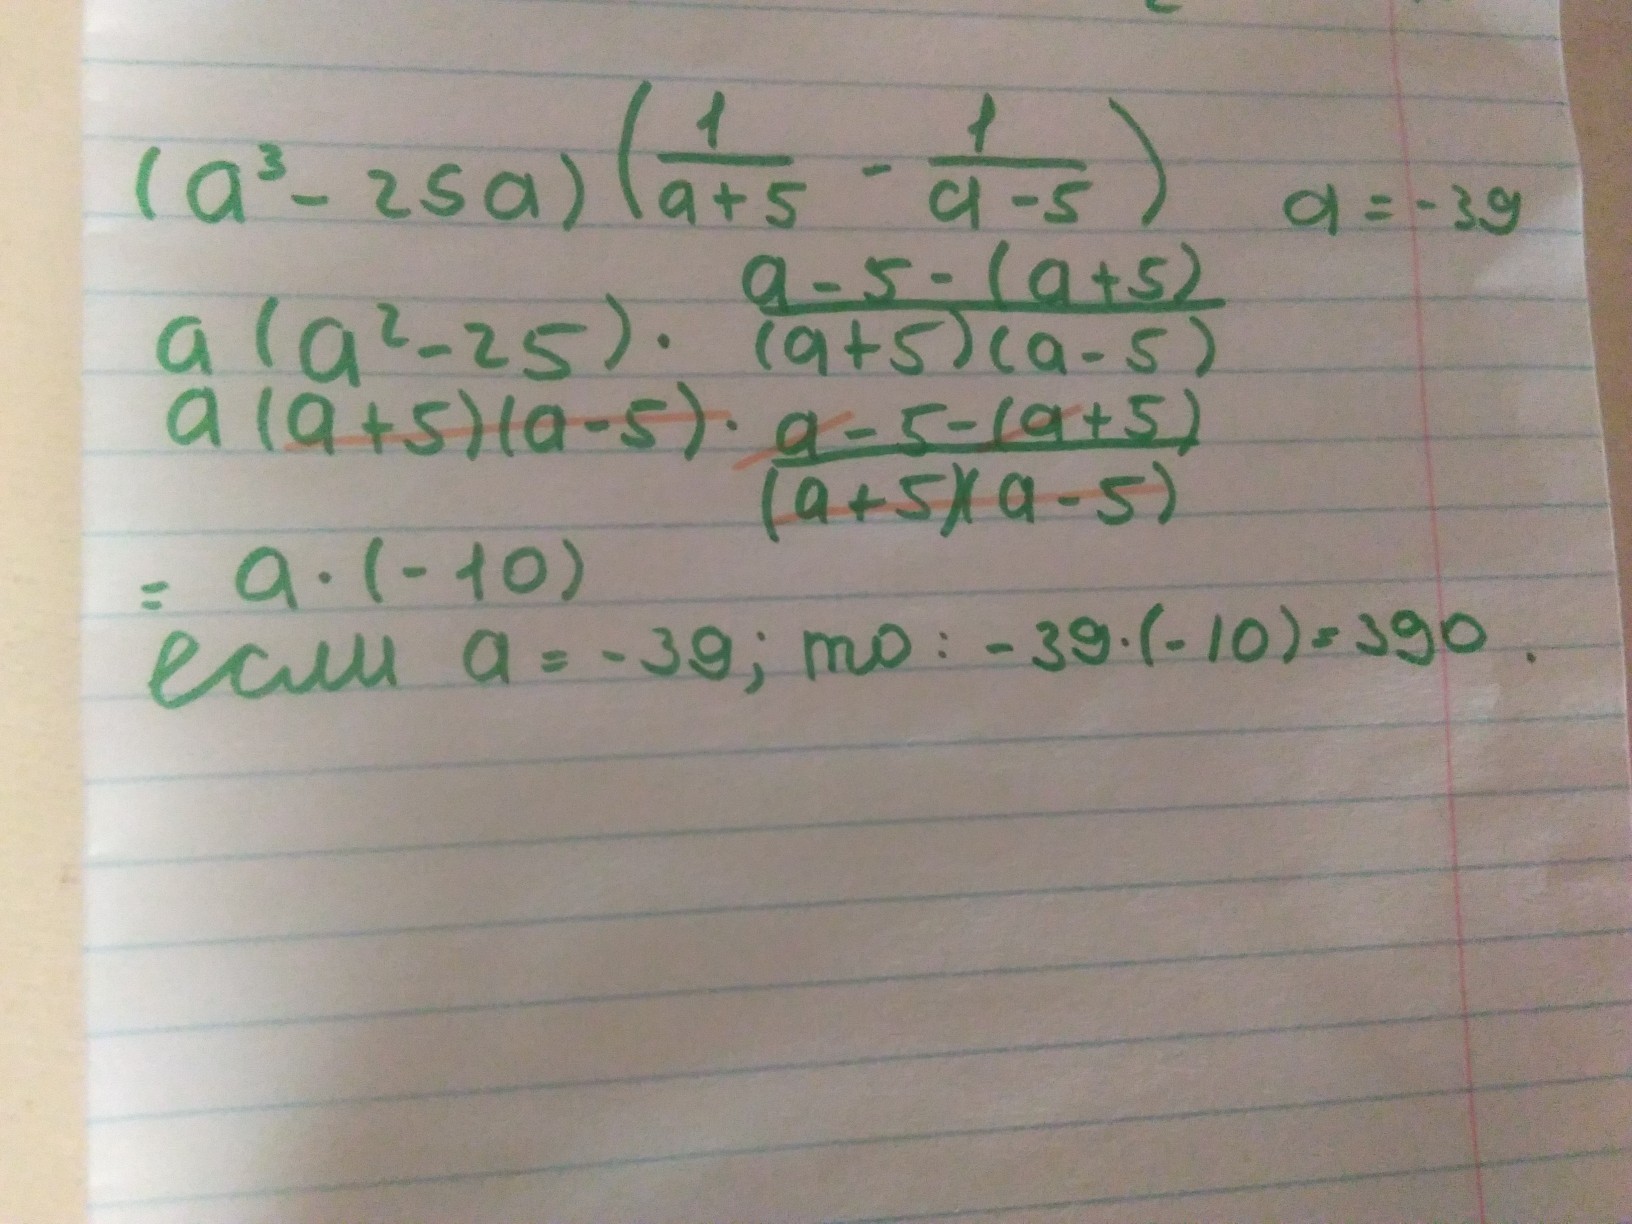 (a³ - 25a) (1/(a+5) - 1/(a-5)) a = -39
a (a² - 25) · (a - 5 - (a+5))/((a+5)(a-5))
a (a+5)(a-5) · (a - 5 - (a+5))/((a+5)(a-5))
= a · (-10)
если a = -39; то: -39·(-10) = 390.